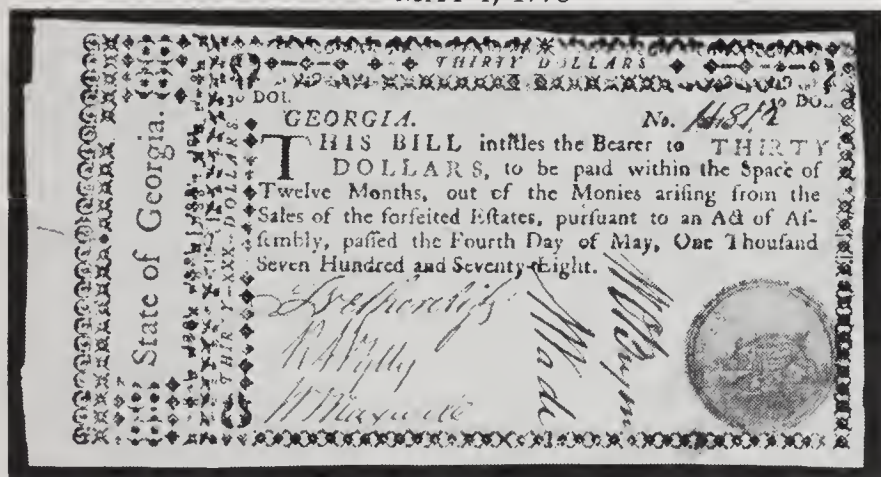 THIRTY DOLLARS
State of Georgia.
THIRTY—XXX—DOLLARS.
30 DOL.
30 DOL.
GEORGIA.
No.
THIS BILL intitles the Bearer to THIRTY
DOLLARS, to be paid within the Space of
Twelve Months, out of the Monies arising from the
Sales of the forfeited Eſtates, purſuant to an Act of Aſ-
ſembly, paſſed the Fourth Day of May, One Thouſand
Seven Hundred and Seventy-Eight.
Wade